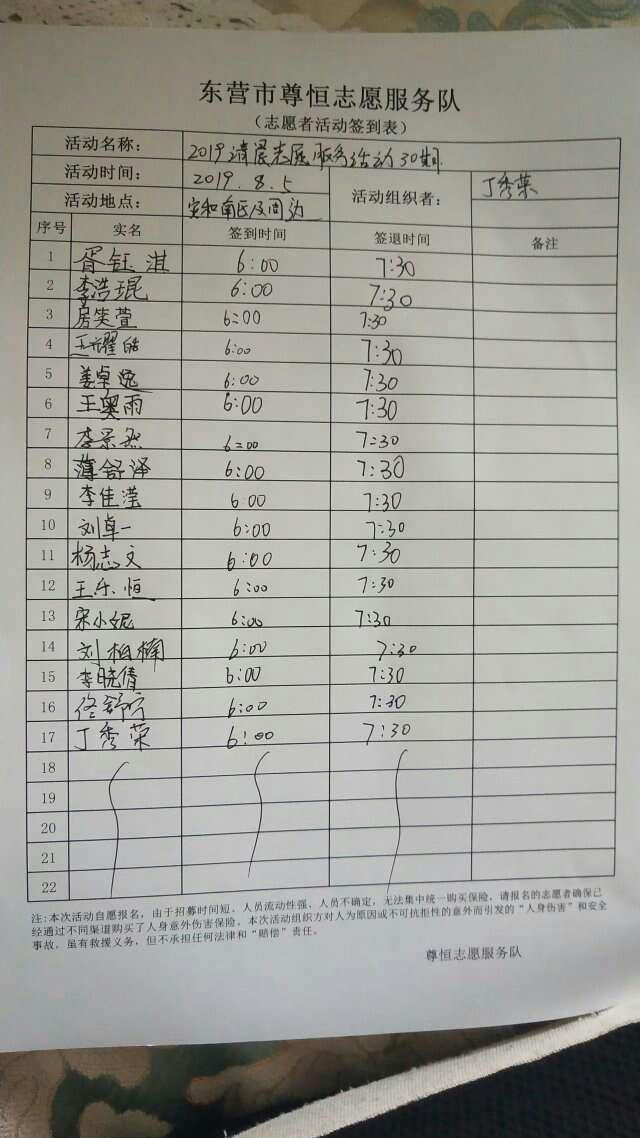 东营市尊恒志愿服务队
（志愿者活动签到表）
活动名称： 2019清晨志愿服务活动30期
活动时间： 2019.8.5 活动组织者： 丁秀荣
活动地点： 安和南区及周边
序号 实名 签到时间 签退时间 备注
1 胥钰淇 6:00 7:30
2 李浩琨 6:00 7:30
3 房笑萱 6:00 7:30
4 6:00 7:30
5 姜卓逸 6:00 7:30
6 王奥雨 6:00 7:30
7 李景然 6:00 7:30
8 薄舒泽 6:00 7:30
9 李佳滢 6:00 7:30
10 刘卓一 6:00 7:30
11 杨志文 6:00 7:30
12 王乐恒 6:00 7:30
13 宋小妮 6:00 7:30
14 刘柏楠 6:00 7:30
15 李晓倩 6:00 7:30
16 佟舒 6:00 7:30
17 丁秀荣 6:00 7:30
18
19
20
21
22
注：本次活动自愿报名，由于招募时间短、人员流动性强、人员不确定，无法集中统一购买保险，请报名的志愿者确保已
经通过不同渠道购买了人身意外伤害保险，本次活动组织方对人为原因或不可抗拒性的意外而引发的“人身伤害”和安全
事故，虽有救援义务，但不承担任何法律和“赔偿”责任。
尊恒志愿服务队